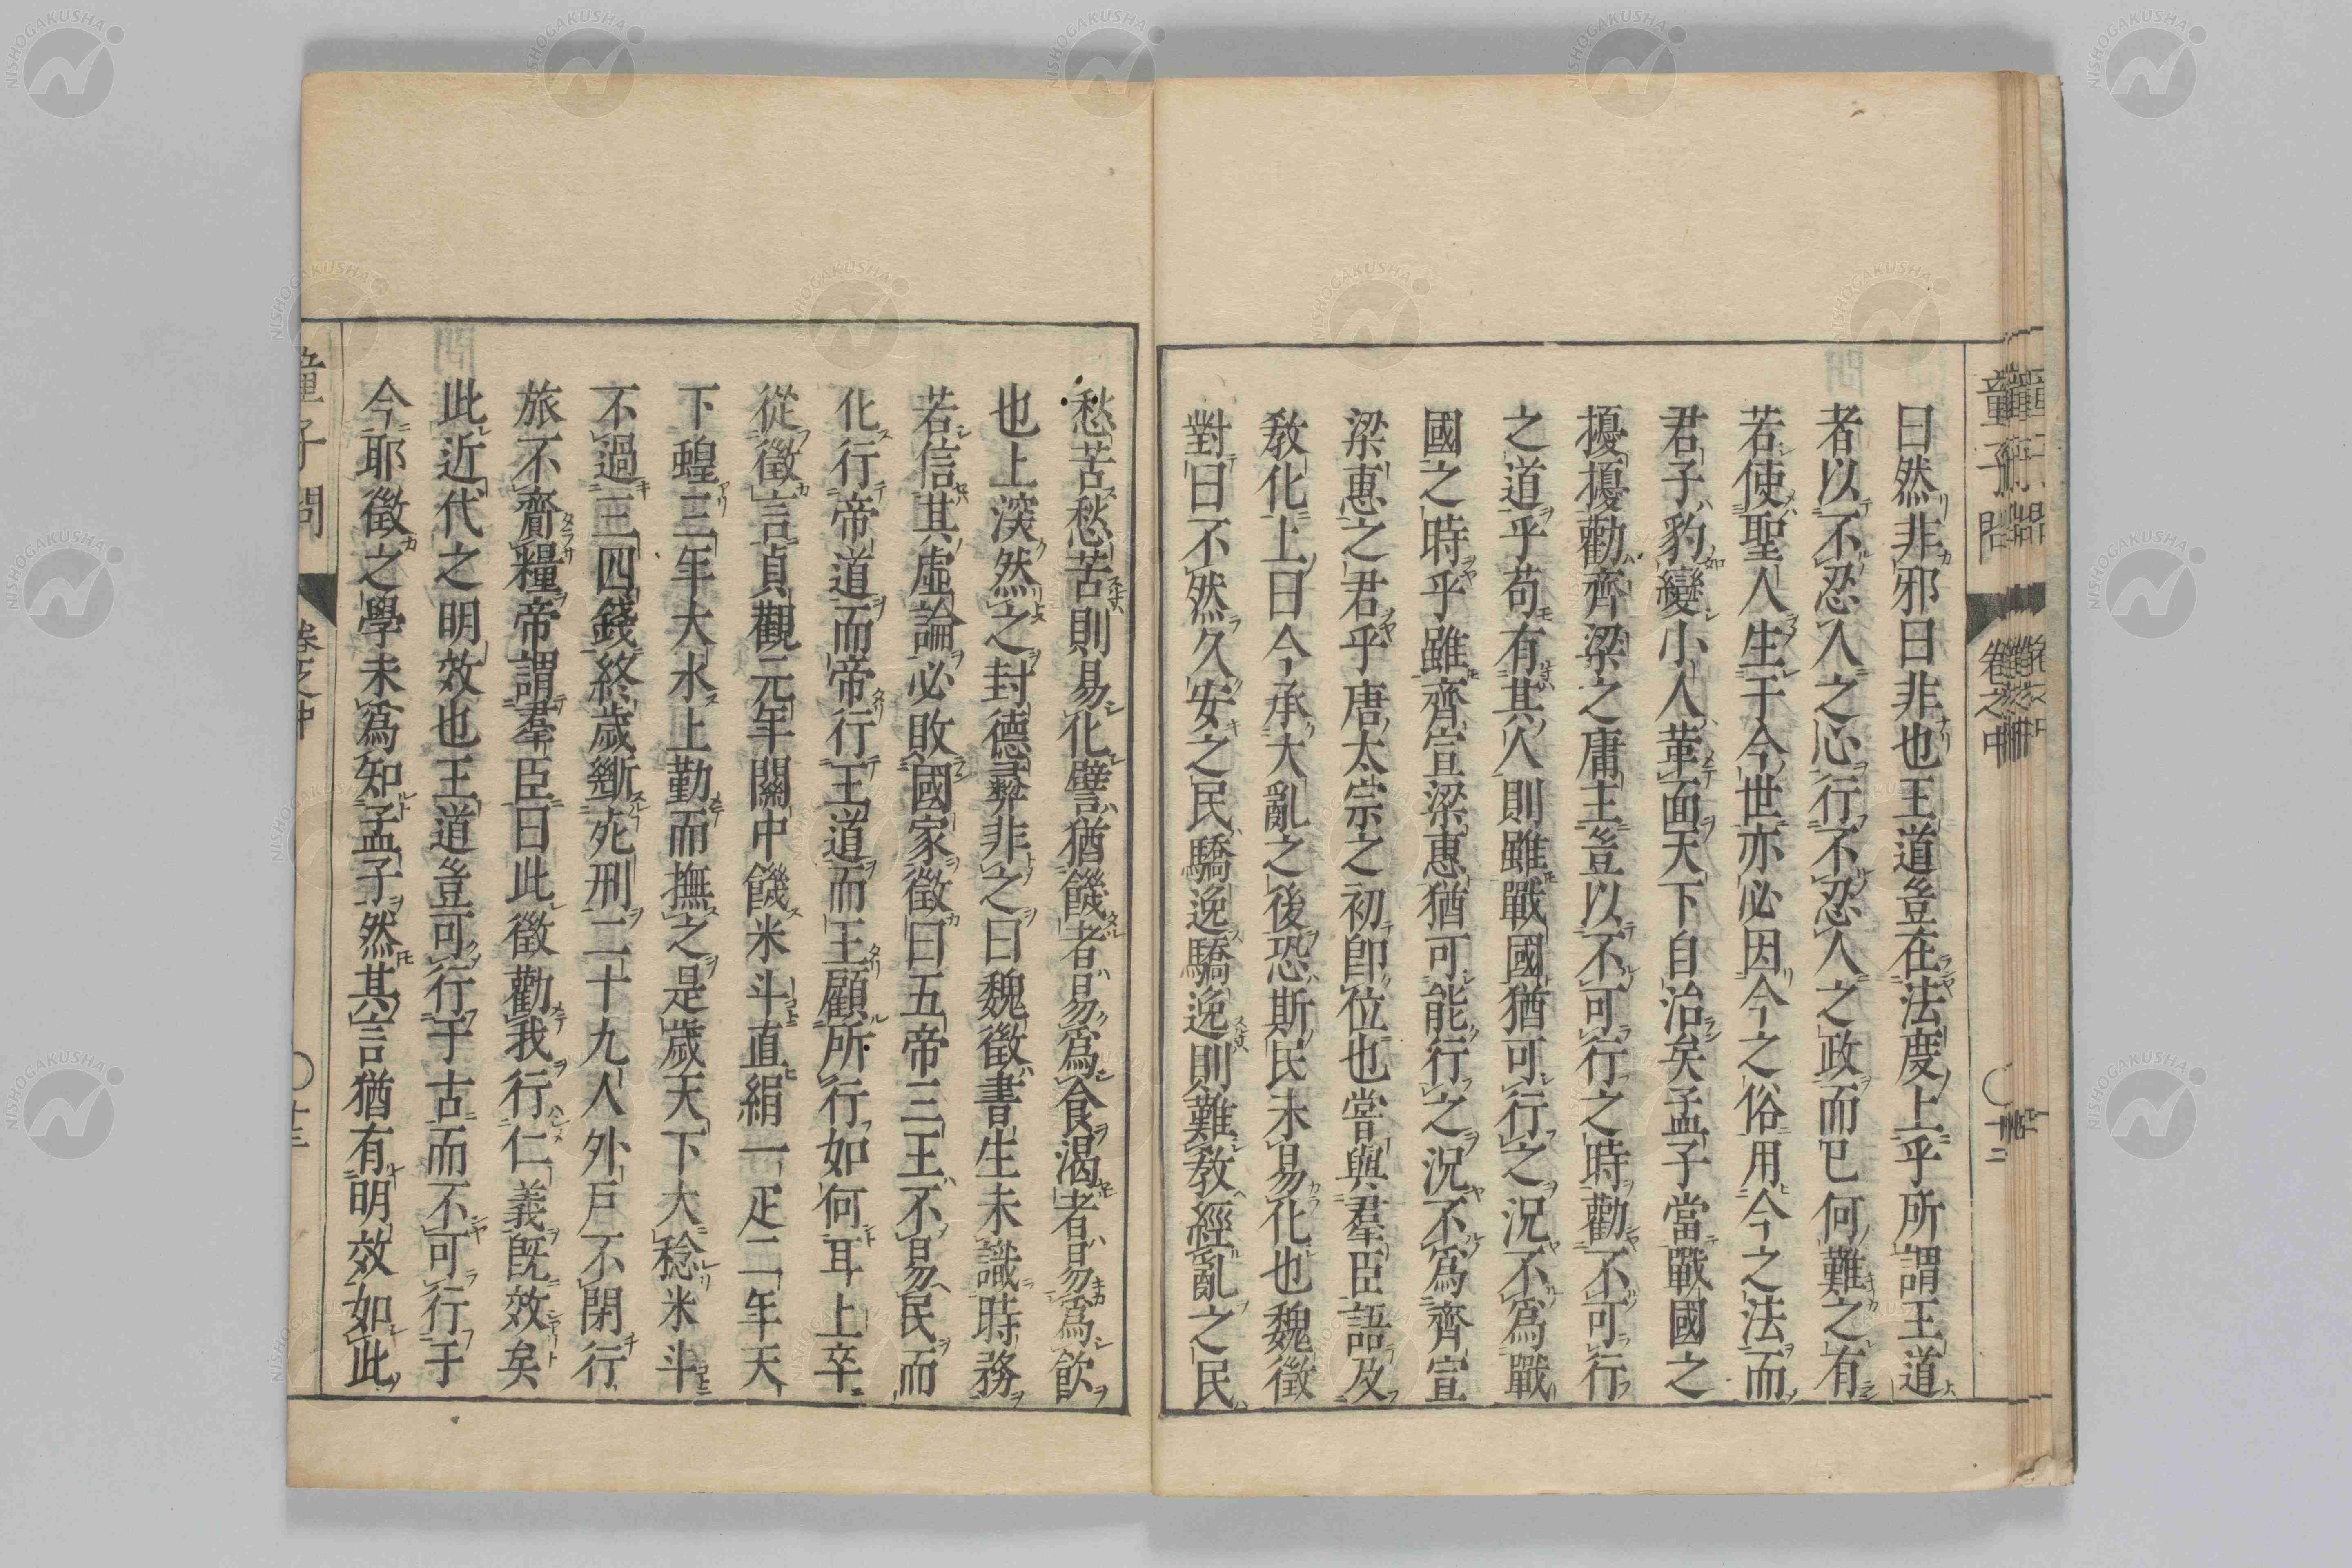 曰然非邪曰非也王道豈在法度上乎所謂王道
者以不忍人之心行不忍人之政而已何難之有
若使聖人生于今世亦必因今之俗用今之法而
君子豹變小人革面天下自治矣孟子當戰國之
擾擾勸齊梁之庸主豈以不可行之時勸不可行
之道乎苟有其人則雖戰國猶可行之況不爲戰
國之時乎雖齊宣梁惠猶可能行之況不爲齊宣
梁惠之君乎唐太宗之初卽位也嘗與羣臣語及
教化上曰今承大亂之後恐斯民未易化也魏徵
對曰不然久安之民驕逸驕逸則難教經亂之民
愁苦愁苦則易化譬猶饑者易爲食渴者易爲飲
也上深然之封德彝非之曰魏徵書生未識時務
若信其虛論必敗國家徵曰五帝三王不易民而
化行帝道而帝行王道而王顧所行如何耳上卒
從徵言貞觀元年關中饑米斗直絹一疋二年天
下蝗三年大水上勤而撫之是歲天下大稔米斗
不過三四錢終歲斷死刑二十九人外戶不閉行
旅不齎糧帝謂羣臣曰此徵勸我行仁義旣效矣
此近代之明效也王道豈可行于古而不可行于
今耶徵之學未爲知孟子然其言猶有明效如此
童子問
卷之中